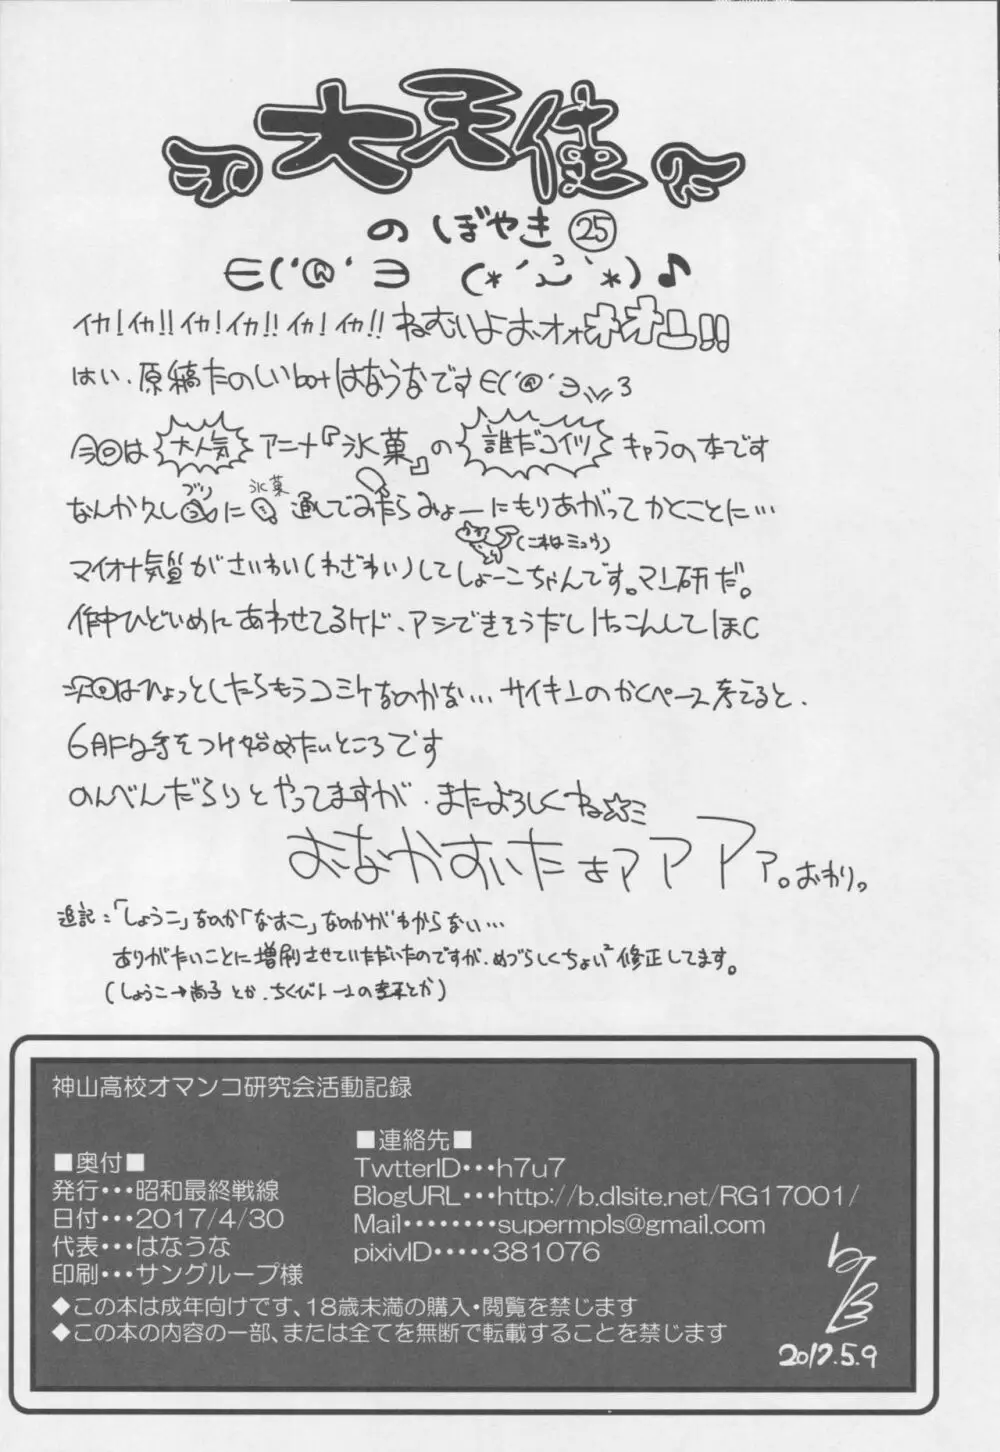 大天使
のぼやき㉕
∈('@'∋ (*´ω`*)♪
イカ!イカ!!イカ!イカ!!イカ!イカ!!ねむいよおオォオオユ!!
はい、原稿たのしいbotはなうなです∈('@'∋彡3
今回は大人気アニナ『氷菓』の誰だコイツキャラの本です
なんか久しぶりに氷菓通しでみたらみょーにもりあがってかくことに…
(これはミュウ)
マイオナ気質がさいわい(わざわい)してしょーこちゃんです。マン研だ。
作中ひどいめにあわせてるケド、アシできそうだしけっこんしてほC
次回はひょっとしたらもうコミケなのかな…サイキンのかくペース考えると、
6月下旬手をつけ始めたいところです
のんべんだらりとやってますが、またよろしくね☆ミ
おなかすいたよアアアァ。おわり。
追記:「しょうこ」なのか「なおこ」なのかがわからない…
ありがたいことに増刷させていただいたのですが、めづらしくちょい²修正してます。
(しょうこ→尚子とか、ちくびトーンの差異とか)
神山高校オマンコ研究会活動記録
■奥付■
発行・・・昭和最終戦線
日付・・・2017/4/30
代表・・・はなうな
印刷・・・サングループ様
■連絡先■
TwtterID・・・h7u7
BlogURL・・・http://b.dlsite.net/RG17001/
Mail・・・・・・・・supermpls@gmail.com
pixivID・・・・・381076
◆この本は成年向けです、18歳未満の購入・閲覧を禁じます
◆この本の内容の一部、または全てを無断で転載することを禁じます
2017.5.9